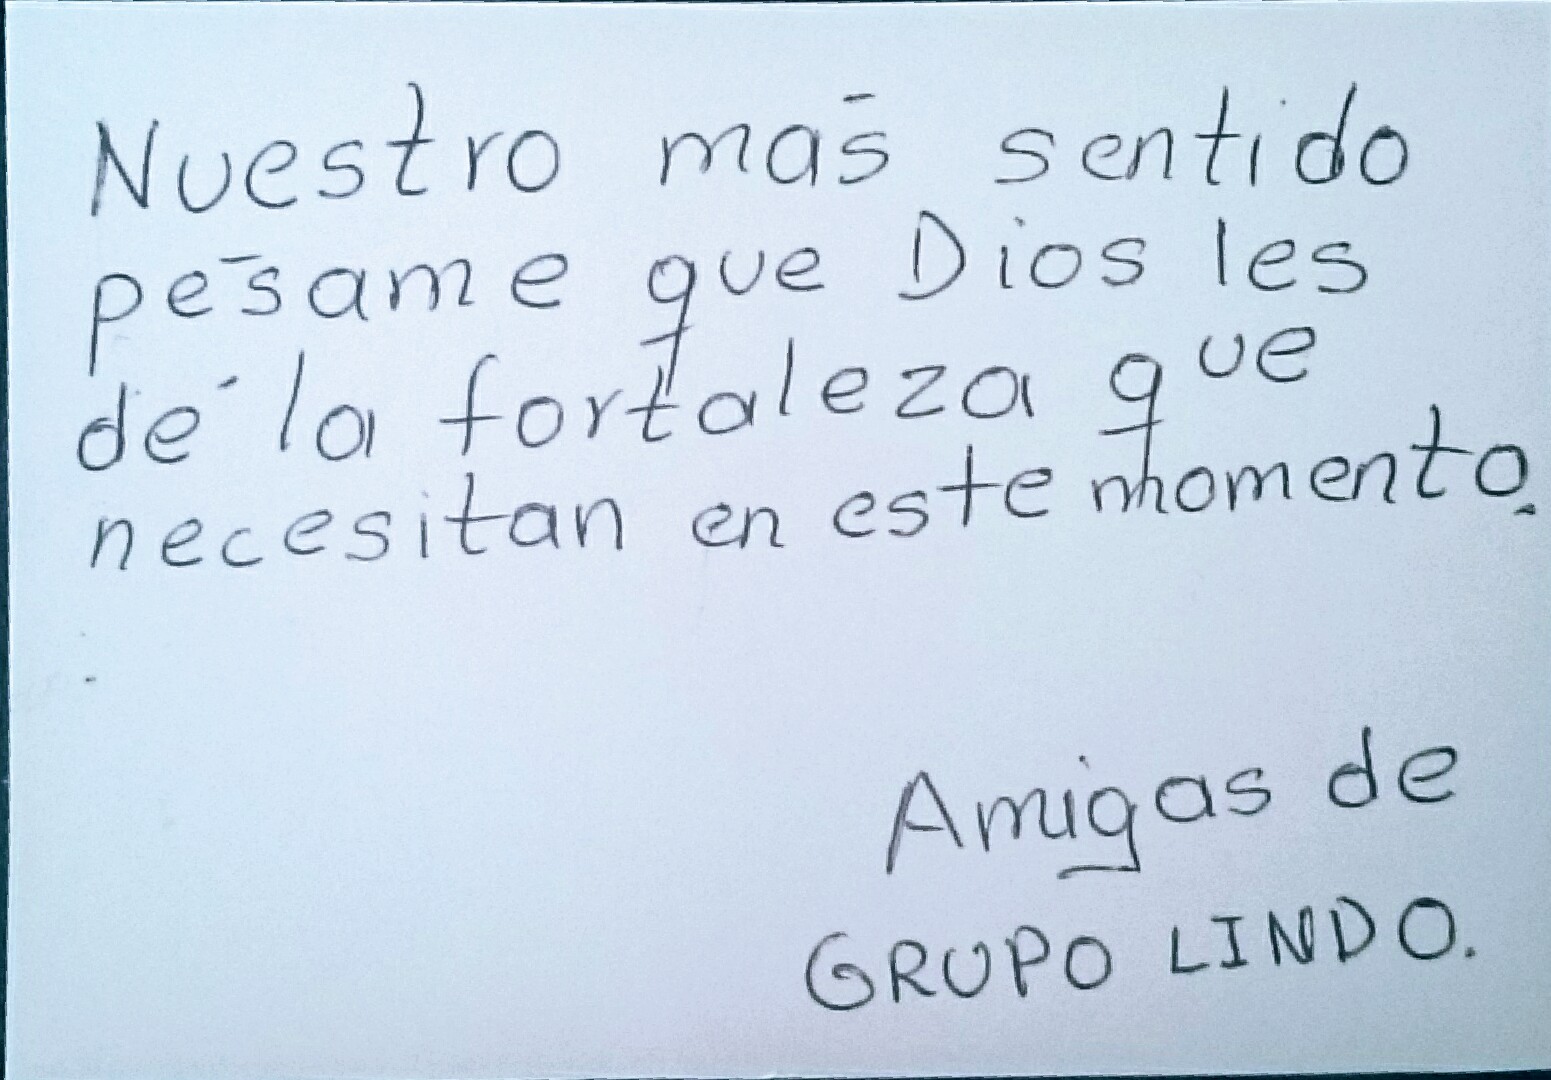 Nuestro más sentido
pésame que Dios les
dé la fortaleza que
necesitan en este momento.
Amigas de
GRUPO LINDO.